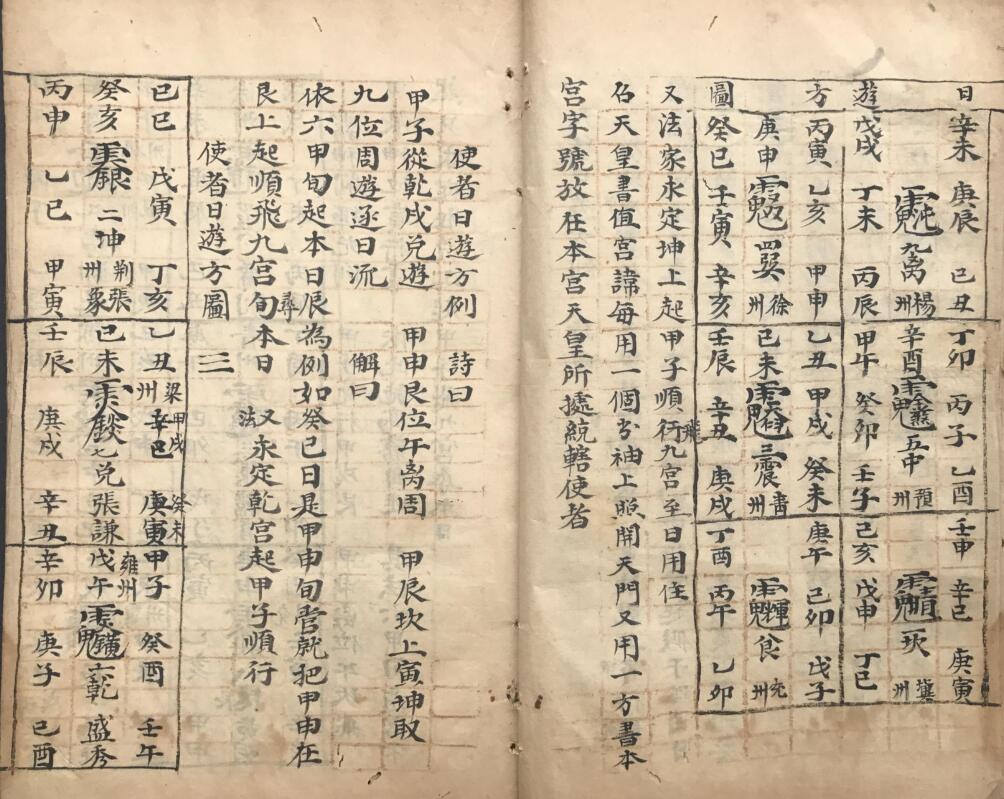 日遊方圖
辛未 庚辰 己丑
九离
楊州
戊戌 丁未 丙辰
丙寅 乙亥 甲申
庚申 四巽
徐州
癸巳 壬寅 辛亥
丁卯 丙子 乙酉
辛酉 五中
預州
甲午 癸卯 壬子
乙丑 甲戌 癸未
己未 三震
青州
壬辰 辛丑 庚戌
壬申 辛巳 庚寅
一坎
冀州
己亥 戊申 丁巳
庚午 己卯 戊子
艮
兖州
丁酉 丙午 乙卯
又法家永定坤上起甲子順飛行九宫至日用住
名天皇書值宫諱每用一個分袖上照開天門又用一方書本
宫字號放在本宫天皇所據統轄使者
使者日遊方例 詩曰
甲子從乾戌兑遊 甲申艮位午离周 甲辰坎上寅坤取
九位周遊逐日流 解曰
依六甲旬起本日辰為例如癸巳日是甲申旬管就把甲申在
艮上起順飛九宫旬尋本日 又法永定乾宫起甲子順行
使者日遊方圖 三
己巳 戊寅 丁亥
癸亥 二坤 荆州 張象
丙申 乙巳 甲寅
乙丑 梁州 甲戌 辛巳 癸未 庚寅
己未 七兑 張謙
壬辰 庚戌 辛丑
雍州 甲子 癸酉 壬午
戊午 六乾 盛秀
辛卯 庚子 己酉